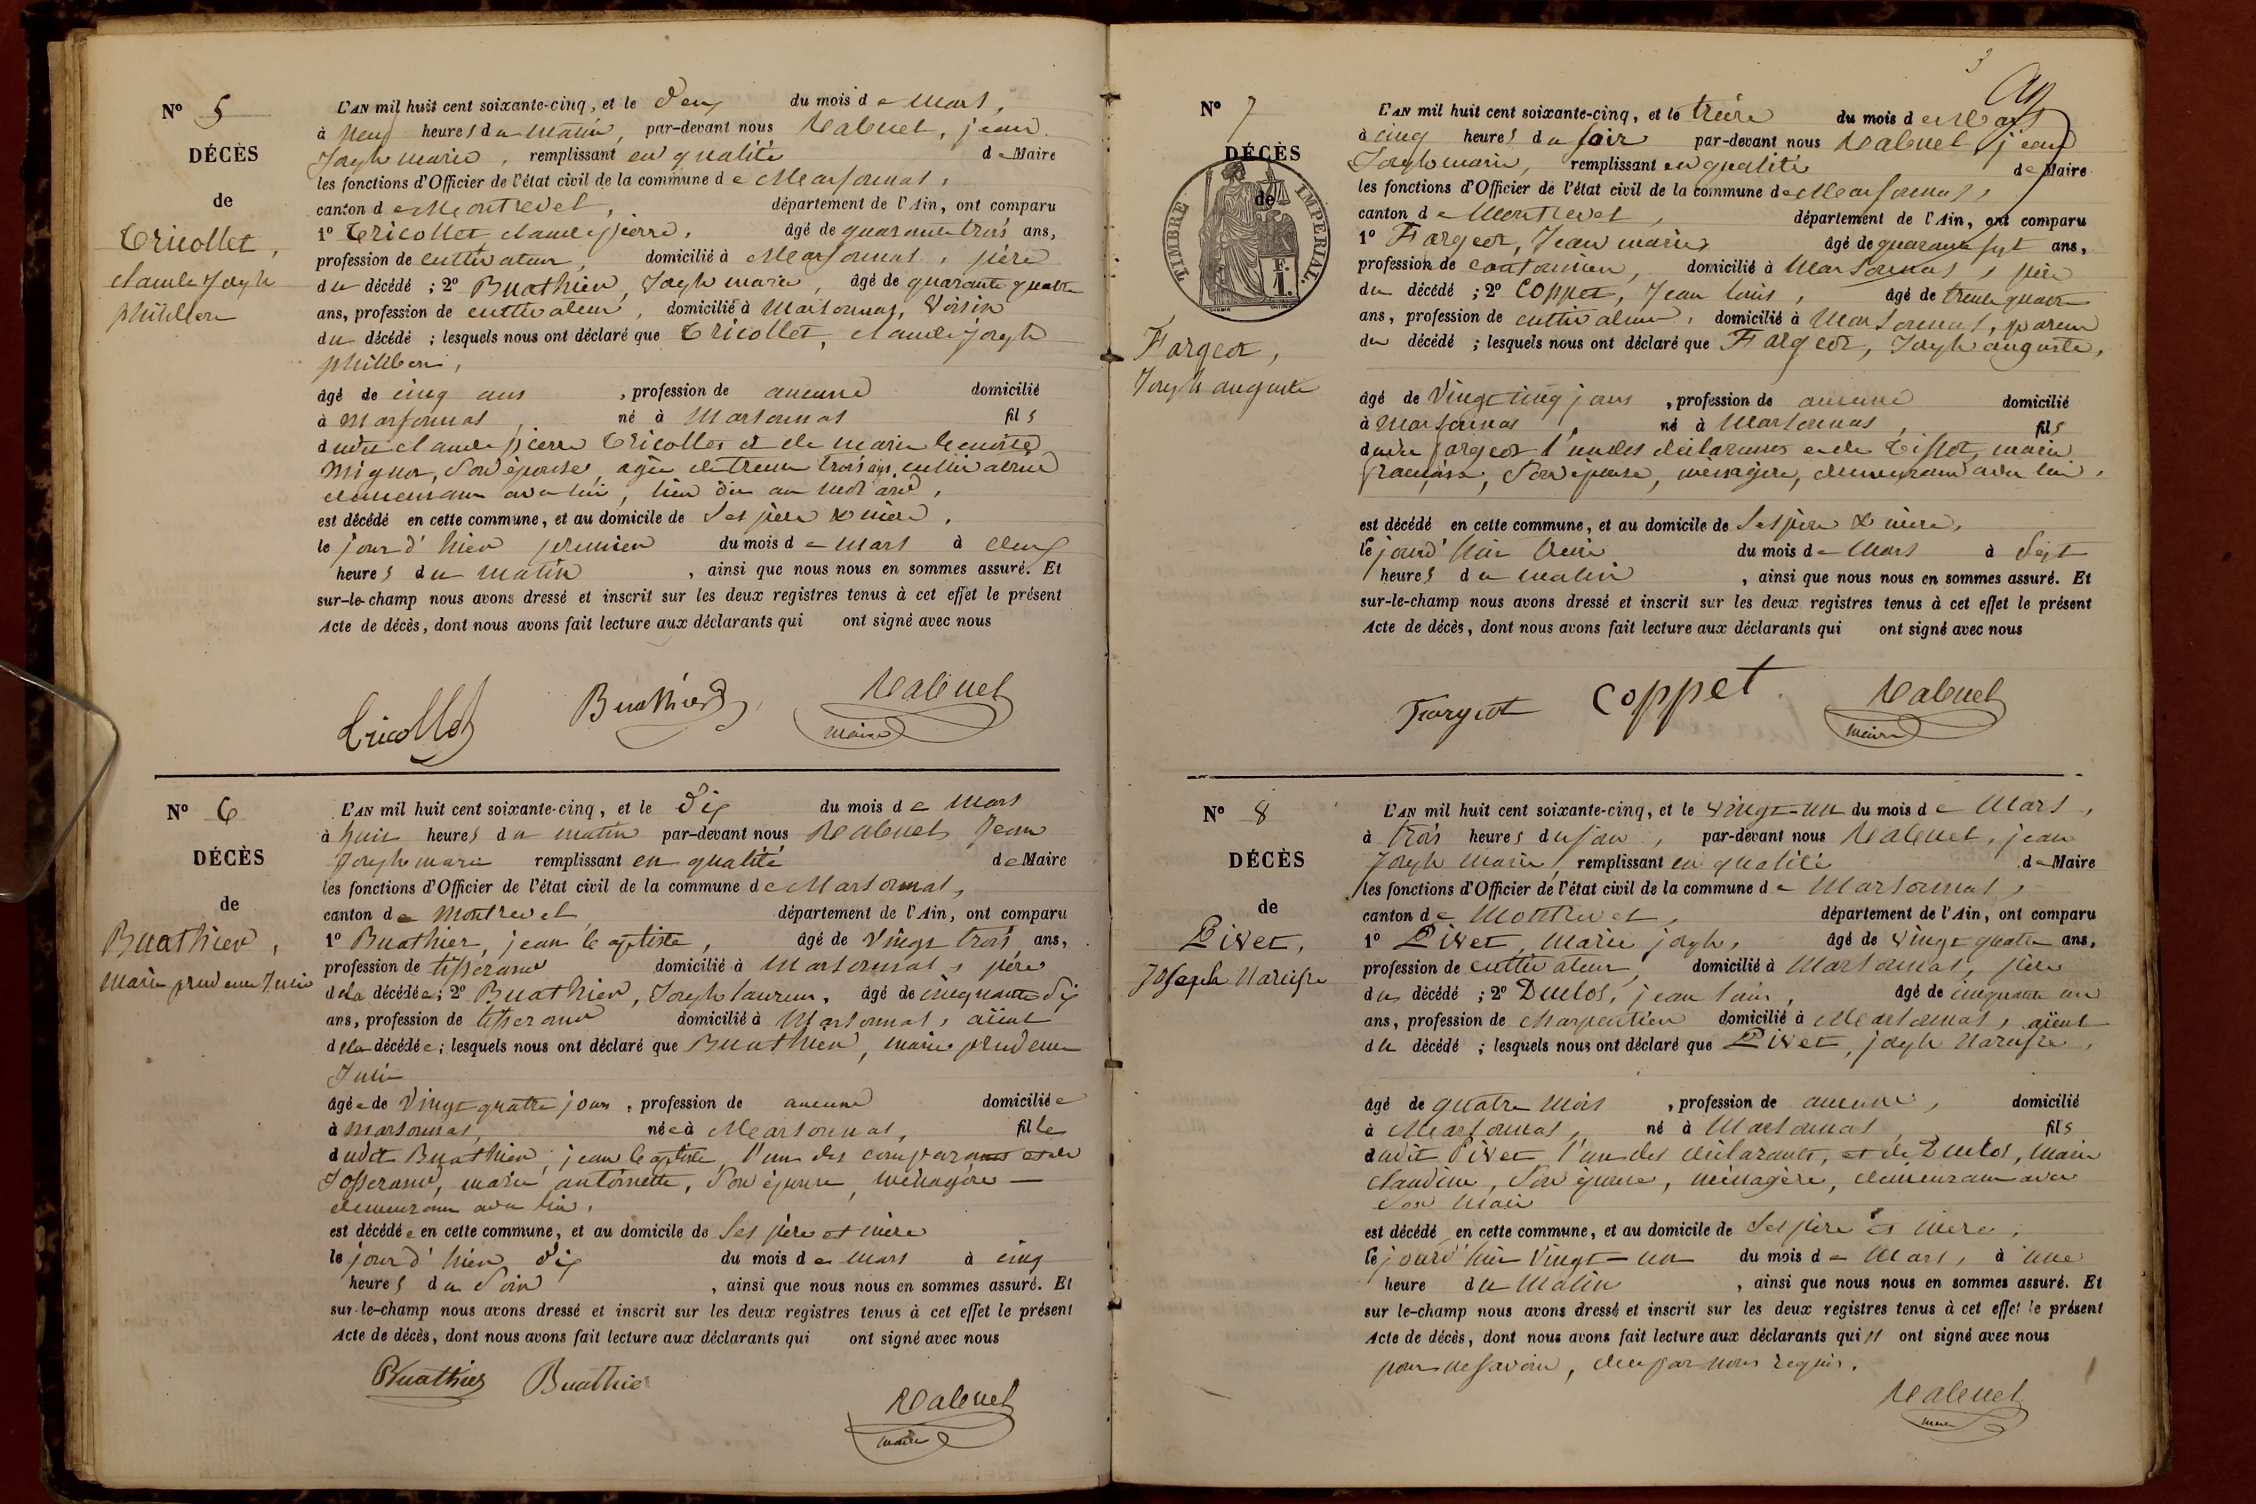 Nº 5
DÉCÈS
de
Tricollet,
claude Joseph
philibert
L'AN mil huit cent soixante-cinq, et le deux du mois de Mars,
à neuf heures du matin, par-devant nous Rabuel, jean
Joseph marie, remplissant en qualité de Maire
les fonctions d'Officier de l'état civil de la commune de Marsonnas,
canton de Montrevel, département de l'Ain, ont comparu
1º Tricollet claude pierre, âgé de quarante trois ans,
profession de cultivateur, domicilié à Marsonnas, père
du décédé ; 2º Buathier, Joseph marie, âgé de quarante quatre
ans, profession de cultivateur, domicilié à Marsonnas, voisin
du décédé ; lesquels nous ont déclaré que Tricollet, claude joseph
philibert,
âgé de cinq ans, profession de aucune domicilié
à Marsonnas, né à Marsonnas fils
dudit claude pierre Tricollet et de marie benoite
Mignot, son épouse, agée de trente trois ans, cultivatrice
demeurant avec lui, lieu dit au
est décédé en cette commune, et au domicile de ses père & mère,
le jour d'hier premier du mois de Mars à deux
heures du matin, ainsi que nous nous en sommes assuré. Et
sur-le-champ nous avons dressé et inscrit sur les deux registres tenus à cet effet le présent
Acte de décès, dont nous avons fait lecture aux déclarants qui ont signé avec nous
Tricollet Buathier Rabuel
maire
Nº 6
DÉCÈS
de
Buathier,
Marie prudence Julie
L'AN mil huit cent soixante-cinq, et le dix du mois de Mars
à huit heures du matin par-devant nous Rabuel Jean
Joseph marie remplissant en qualité de Maire
les fonctions d'Officier de l'état civil de la commune de Marsonnas,
canton de Montrevel, département de l'Ain, ont comparu
1º Buathier, jean baptiste, âgé de vingt trois ans,
profession de tisserand domicilié à Marsonnas, père
de la décédée ; 2º Buathier, Joseph laurent, âgé de cinquante dix
ans, profession de tisserand domicilié à Marsonnas, aïeul
de la décédée ; lesquels nous ont déclaré que Buathier, marie prudence
Julie
âgée de vingt quatre jours, profession de aucune domiciliée
à Marsonnas, née à Marsonnas, fille
dudit Buathier, jean baptiste, l'un des comparants et de
Josserand, marie antoinette, son épouse, ménagère
demeurant avec lui,
est décédée en cette commune, et au domicile de ses père et mère
le jour d'hier dix du mois de mars à cinq
heures du soir, ainsi que nous nous en sommes assuré. Et
sur-le-champ nous avons dressé et inscrit sur les deux registres tenus à cet effet le présent
Acte de décès, dont nous avons fait lecture aux déclarants qui ont signé avec nous
Buathier Buathier
Rabuel
maire
3
Nº 7
DÉCÈS
de
TIMBRE IMPÉRIAL
F.
1.
Fargeot,
Joseph auguste
L'AN mil huit cent soixante-cinq, et le treize du mois de Mars
à cinq heures du soir par-devant nous Rabuel, jean
Joseph marie, remplissant en qualité de Maire
les fonctions d'Officier de l'état civil de la commune de Marsonnas,
canton de Montrevel, département de l'Ain, ont comparu
1º Fargeot, Jean marie, âgé de quarante sept ans,
profession de cantonnier, domicilié à Marsonnas, père
du décédé ; 2º Coppet, Jean louis, âgé de trente quatre
ans, profession de cultivateur, domicilié à Marsonnas, parent
du décédé ; lesquels nous ont déclaré que Fargeot, Joseph auguste,
âgé de vingt cinq jours, profession de aucune domicilié
à Marsonnas, né à Marsonnas, fils
dudit fargeot l'un des déclarants et de Tissot, marie
françoise, son épouse, ménagère, demeurant avec lui,
est décédé en cette commune, et au domicile de ses père & mère,
le jourd'hui treize du mois de Mars à sept
heures du matin, ainsi que nous nous en sommes assuré. Et
sur-le-champ nous avons dressé et inscrit sur les deux registres tenus à cet effet le présent
Acte de décès, dont nous avons fait lecture aux déclarants qui ont signé avec nous
Fargeot Coppet Rabuel
maire
Nº 8
DÉCÈS
de
Pivet,
Joseph Narcisse
L'AN mil huit cent soixante-cinq, et le vingt-un du mois de Mars,
à trois heures du soir, par-devant nous Rabuel, jean
Joseph marie, remplissant en qualité de Maire
les fonctions d'Officier de l'état civil de la commune de Marsonnas,
canton de Montrevel, département de l'Ain, ont comparu
1º Pivet, Marie joseph, âgé de vingt quatre ans,
profession de cultivateur, domicilié à Marsonnas, père
du décédé ; 2º Duclos, jean louis, âgé de cinquante un
ans, profession de charpentier domicilié à Marsonnas, aïeul
du décédé ; lesquels nous ont déclaré que Pivet, joseph Narcisse,
âgé de quatre mois, profession de aucune, domicilié
à Marsonnas, né à Marsonnas, fils
dudit Pivet l'un des déclarants, et de Duclos, Marie
claudine, son épouse, ménagère, demeurant avec
son mari
est décédé en cette commune, et au domicile de ses père et mère,
le jourd'hui vingt-un du mois de Mars, à une
heure du matin, ainsi que nous nous en sommes assuré. Et
sur le-champ nous avons dressé et inscrit sur les deux registres tenus à cet effet le présent
Acte de décès, dont nous avons fait lecture aux déclarants qui n ont signé avec nous
pour ne savoir, de ce par nous requis.
Rabuel
maire